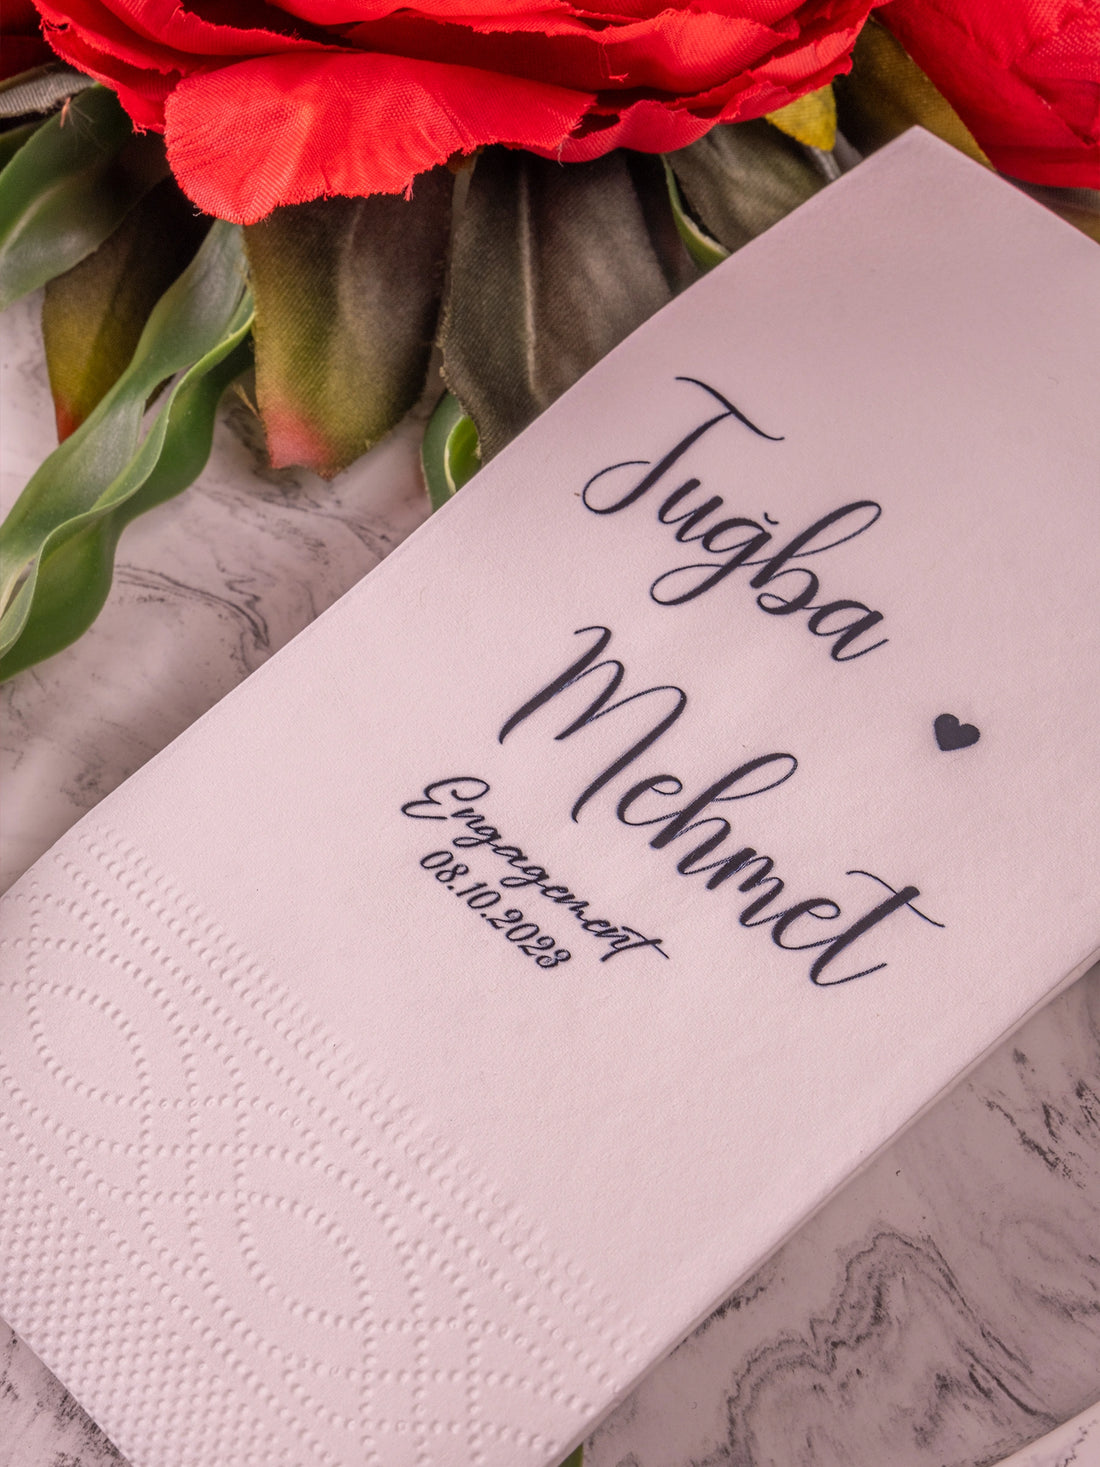 Tuğba
♥
Mehmet
Engagement
08.10.2023